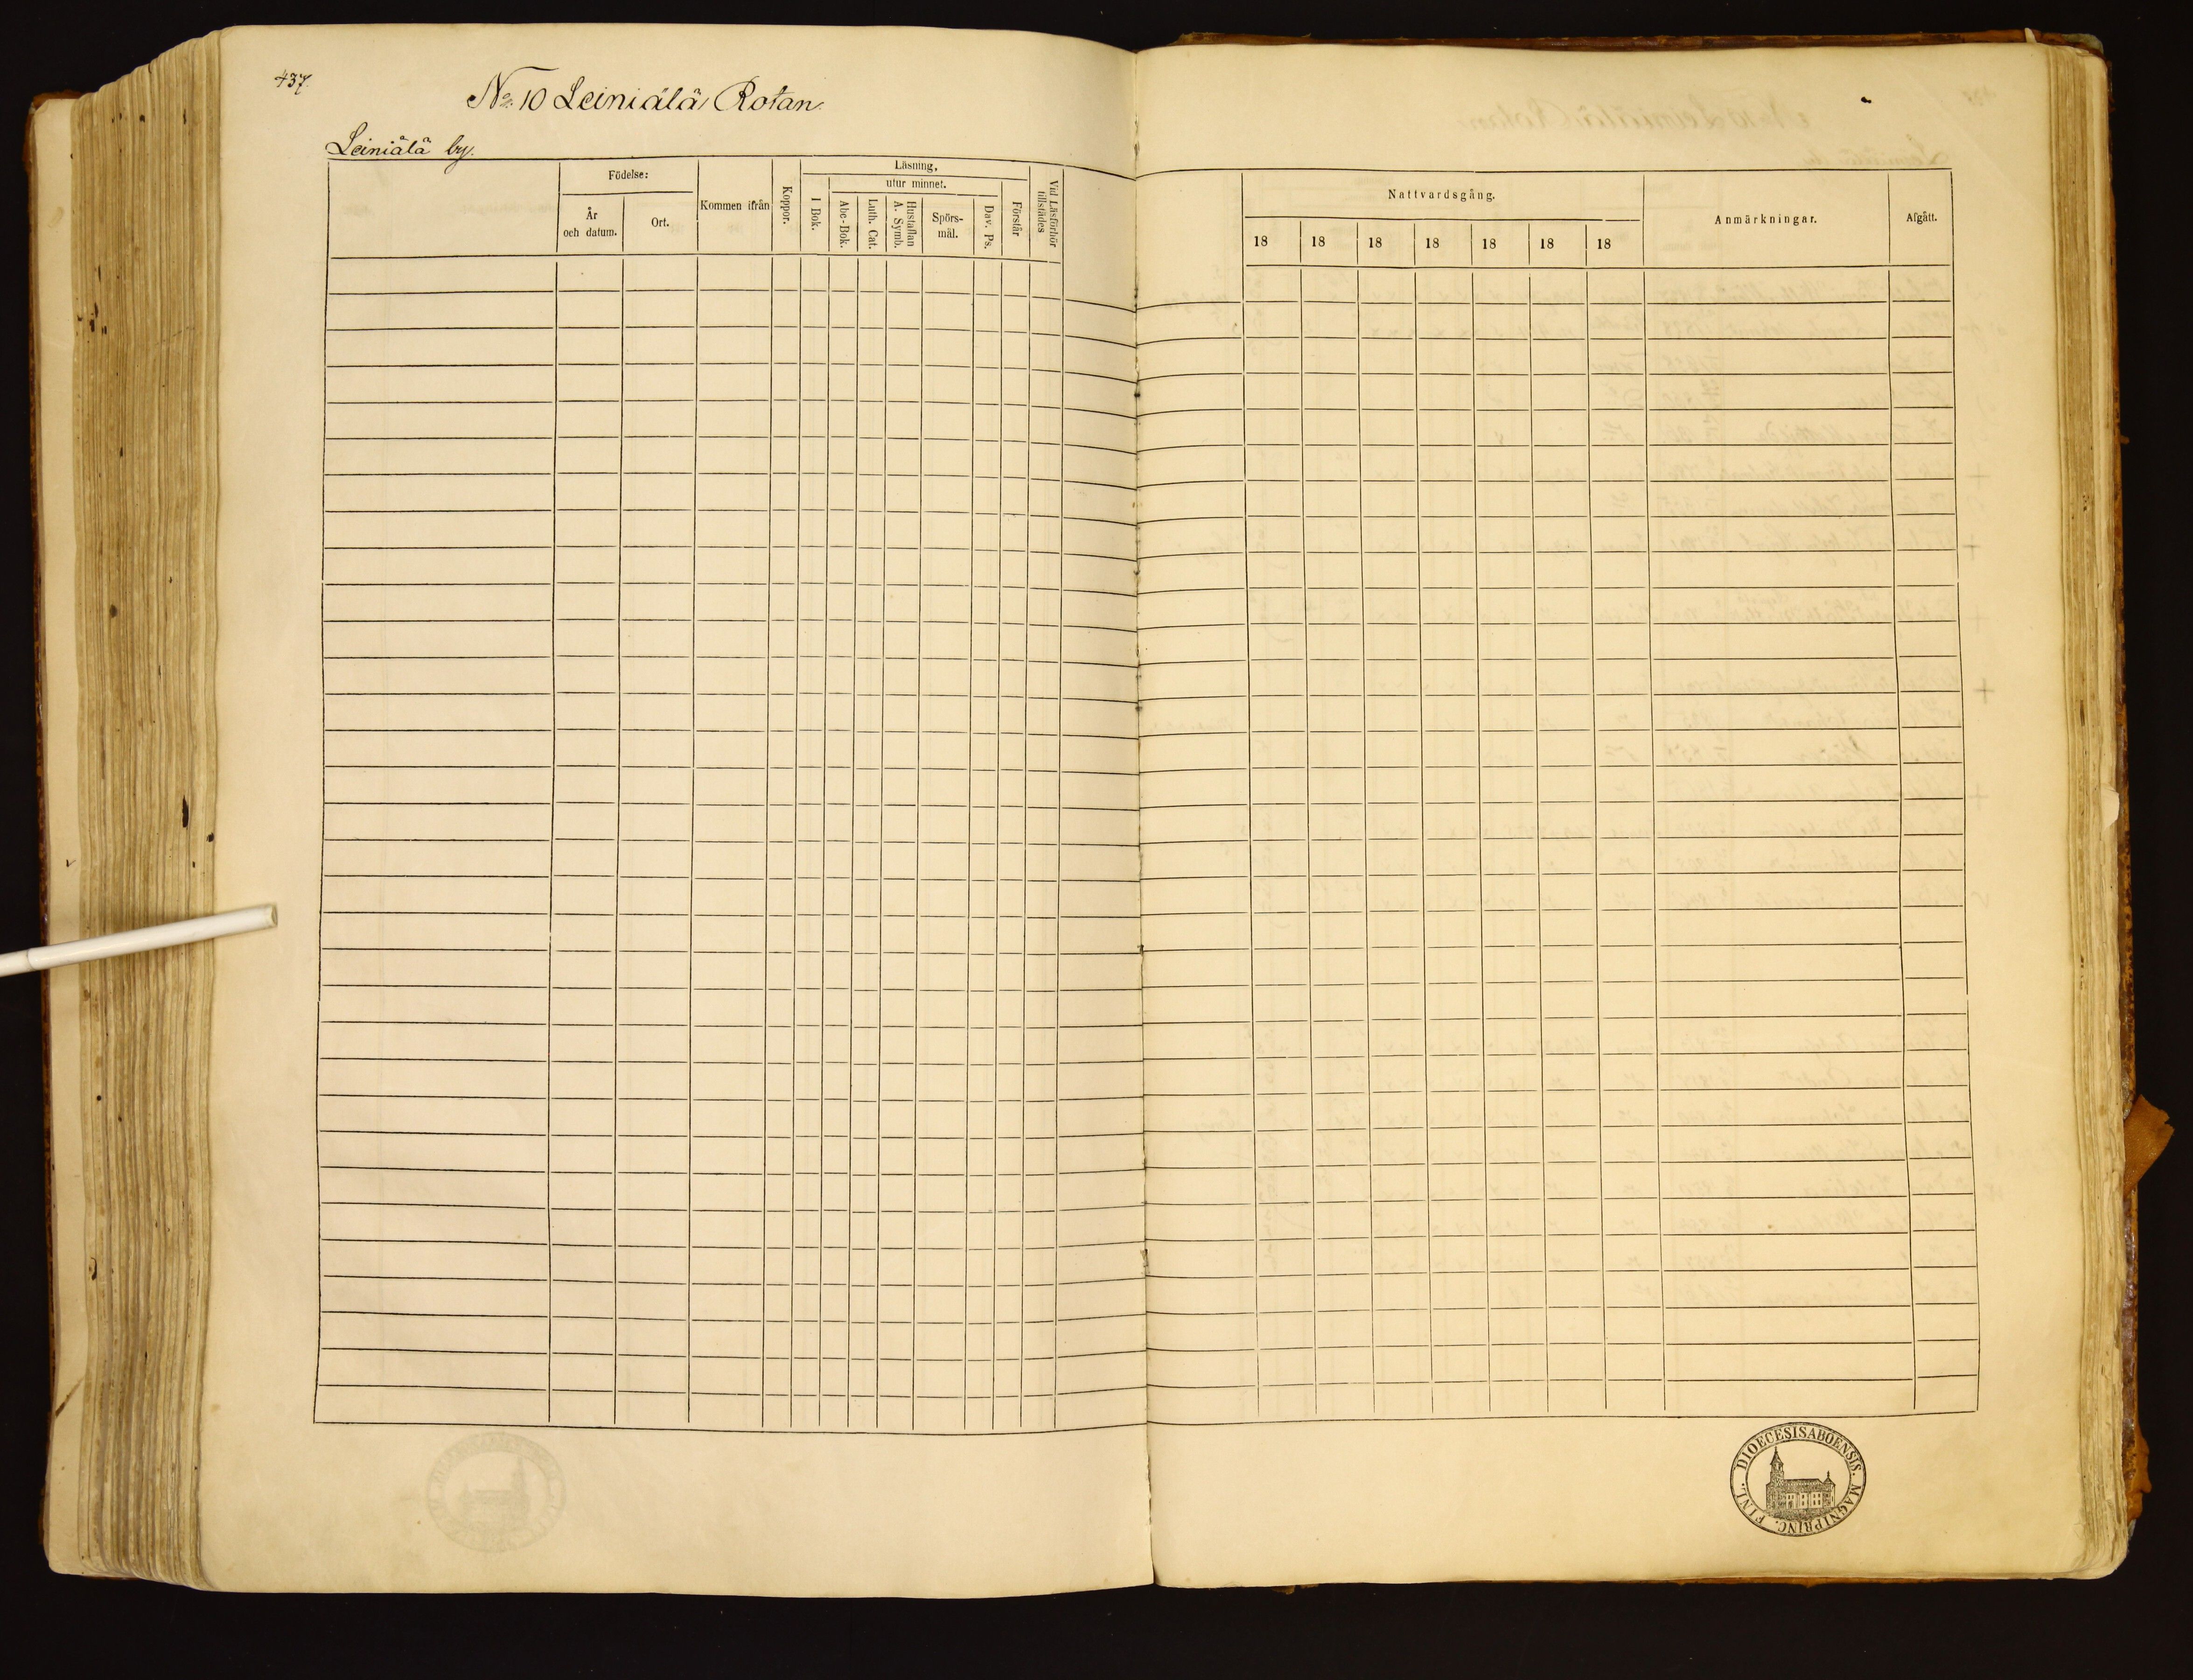 437.
No. 10 Leiniälä Rotan.
Leiniälä by.
Födelse:
År
och datum.
Ort.
Kommen ifrån
Koppor.
Läsning,
I Bok.
utur minnet.
Abc-Bok.
Luth. Cat.
Hustaflan
A. Symb.
Spörs-
mål.
Dav. Ps.
Förstår
Vid Läsförhör
tillstädes
Nattvardsgång.
18 18 18 18 18 18 18
Anmärkningar.
Afgått.
DIOECESISABOENSIS. MAGNIPRINC. FINL.